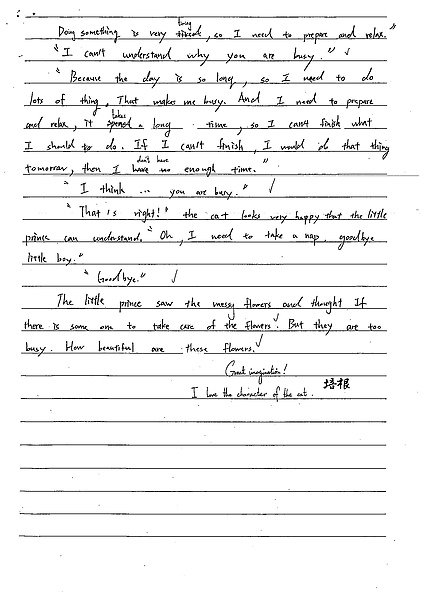 tiring
Doing something is very tired, so I need to prepare and relax."
"I can't understand why you are busy." ✓
"Because the day is so long, so I need to do
lots of thing, That makes me busy. And I need to prepare
takes
and relax, it spend a long time, so I can't finish what
I should to do. If I can't finish, I would do that thing
don't have
tomorrow, then I have no enough time."
"I think ... you are busy." ✓
"That is right!" the cat looks very happy that the little
prince can understand. "Oh, I need to take a nap, goodbye
little boy."
"Goodbye." ✓
The little prince saw the messy flowers and thought If
there is some one to take care of the flowers. ✓ But they are too
busy. How beautiful are these flowers. ✓
Great imagination!
I love the character of the cat. 培根